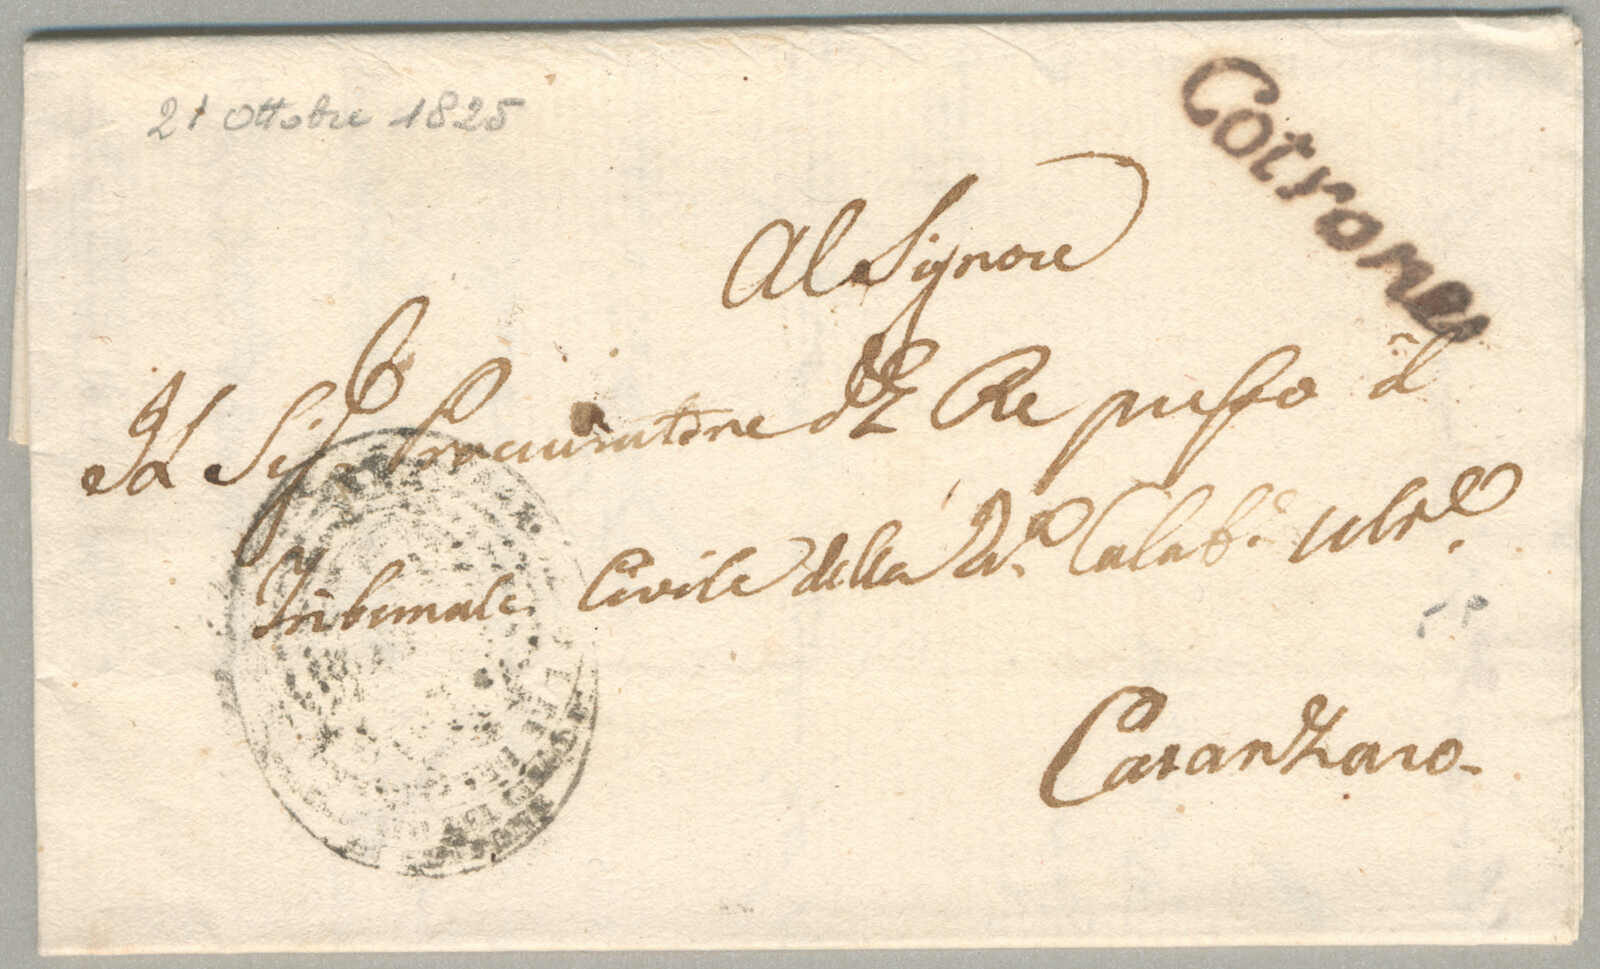 21 ottobre 1825
Cotrone
Al Signore
Il Sig.r Procuratore del Re presso il
Tribunale Civile della 2.a Calab.a Ult.a
Catanzaro